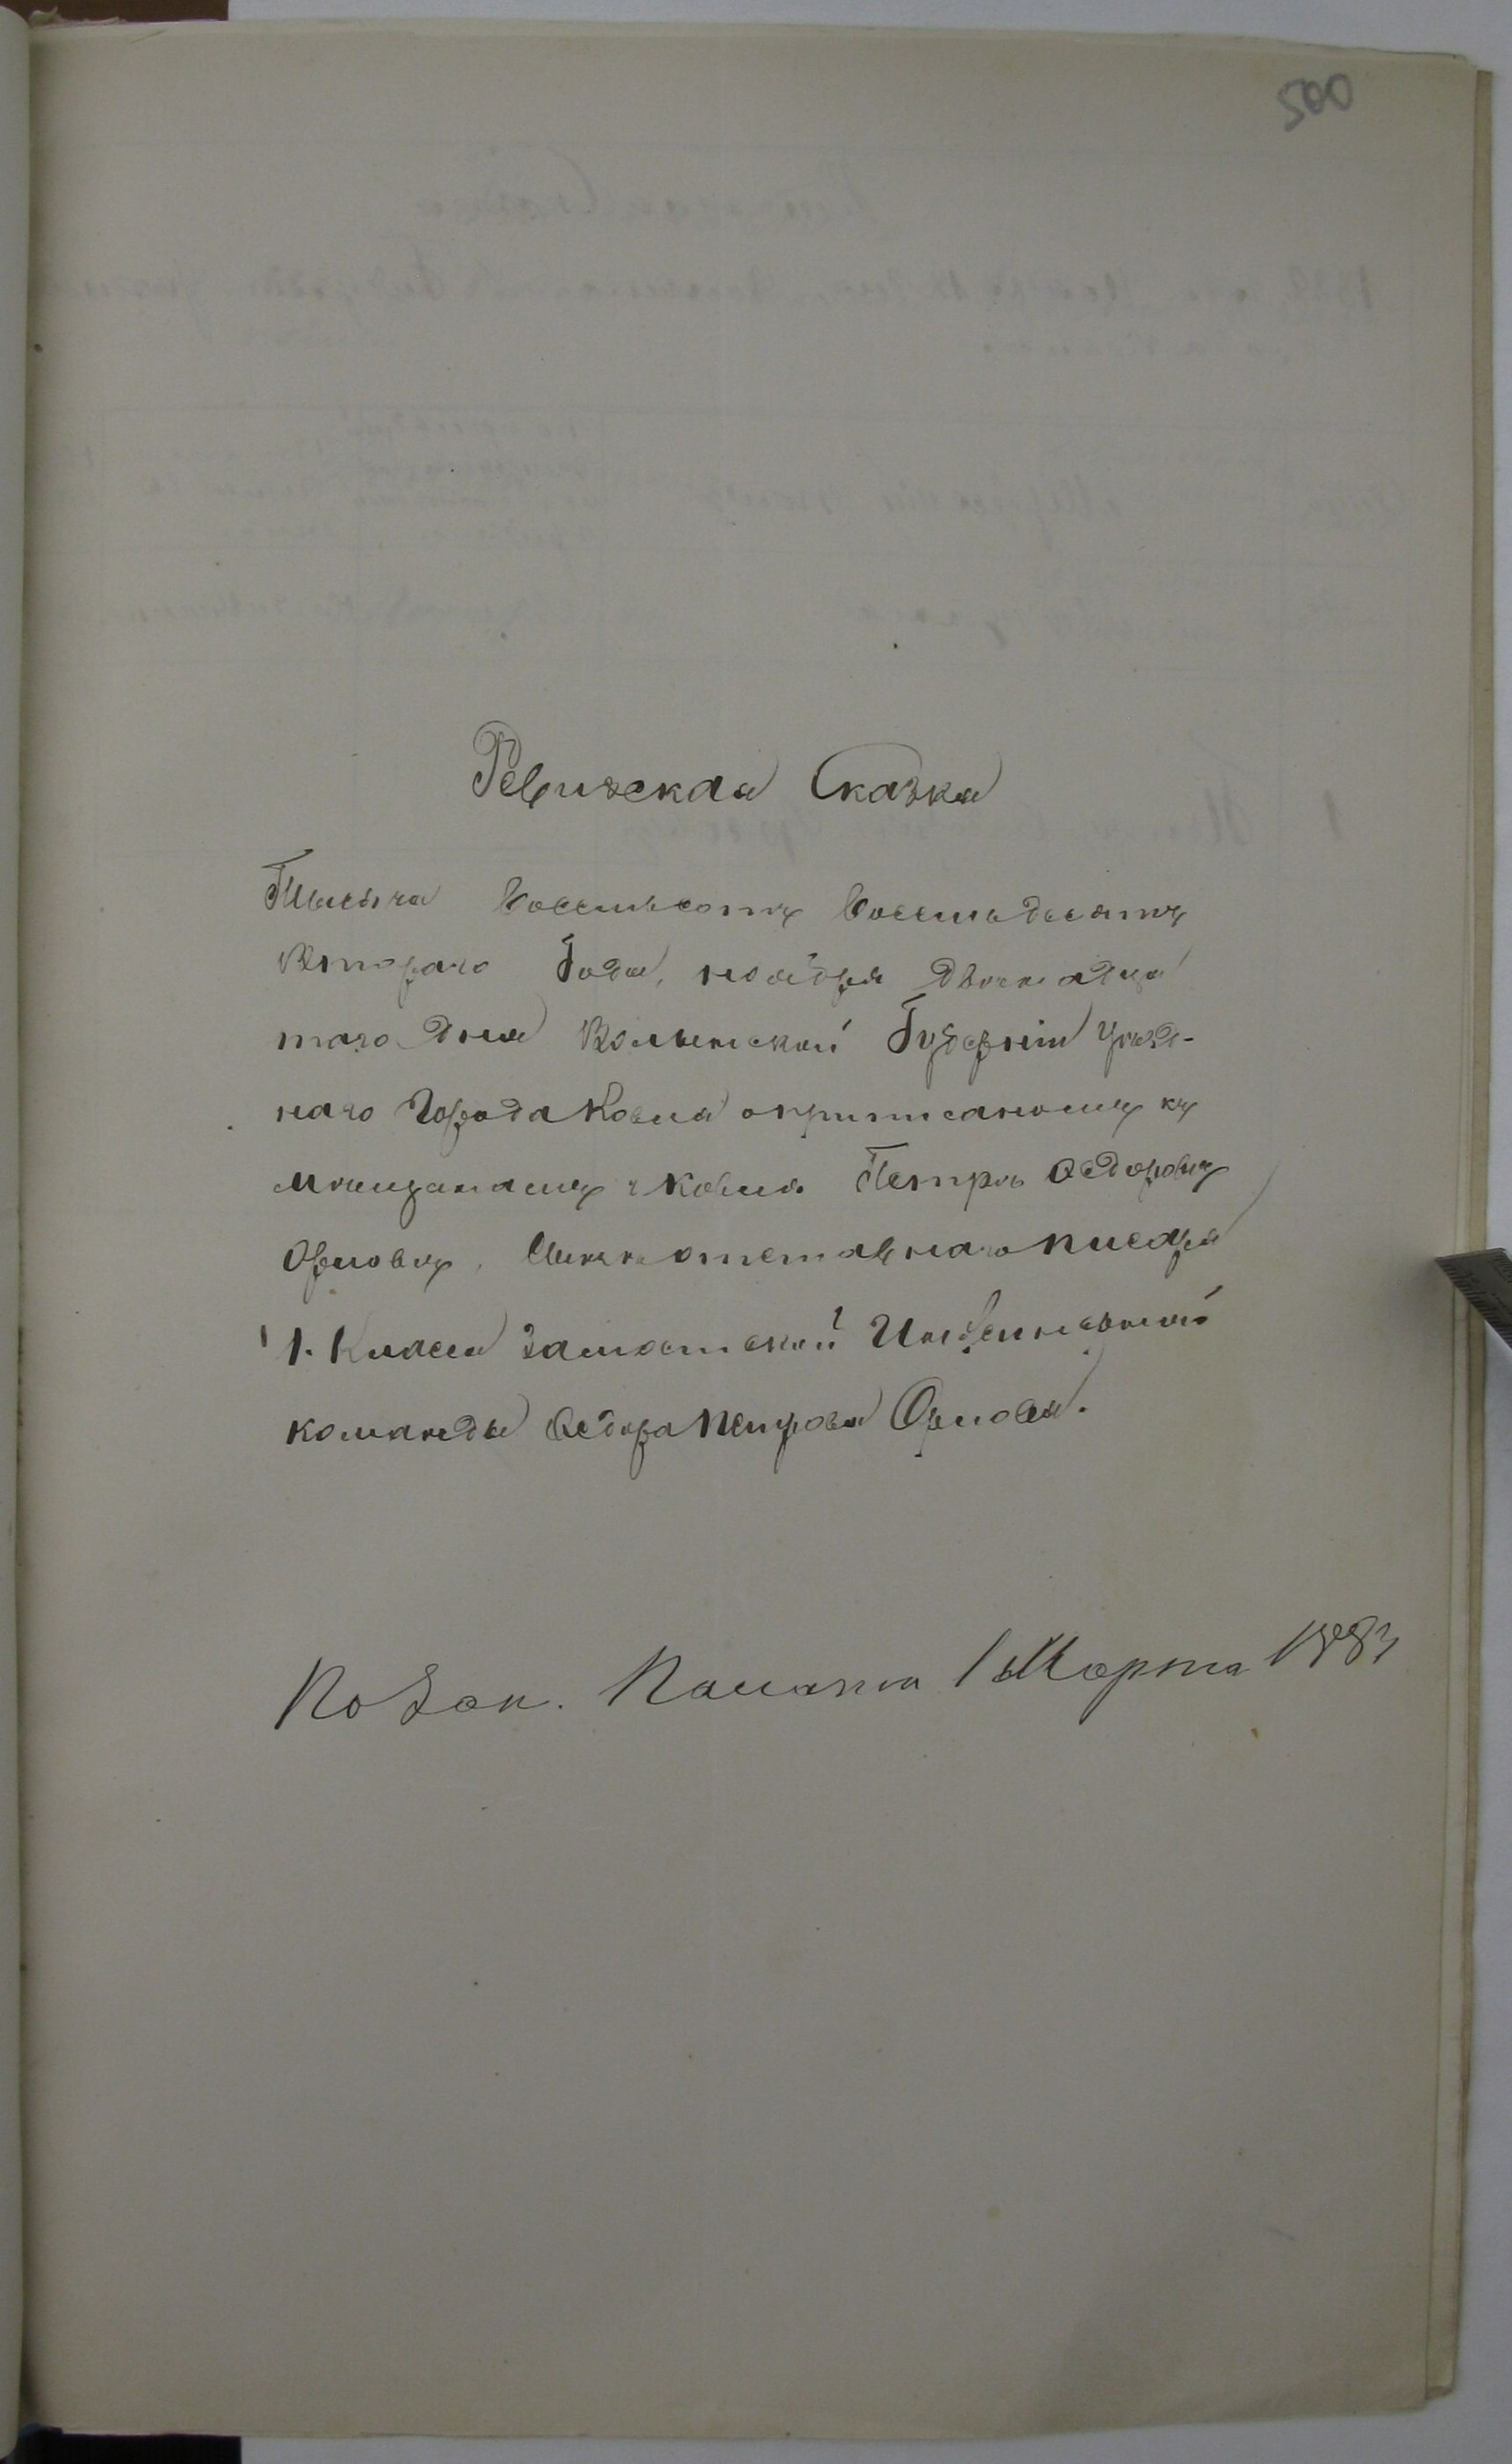 500
Ревизская Сказка
Тысяча Восемьсотъ Восемьдесятъ
Втораго Года, ноября двенадца
таго дня Волынской Губерніи Уѣзд-
наго Города Ковля о приписаномъ къ
мѣщанамъ г Ковля Петрѣ Ѳедоровѣ
Орловѣ, сынѣ отставнаго писаря
1. Класса Замостской Инженерной
команды Ѳедора Петрова Орлова.
По Зак. Палаты 1 Марта 1883